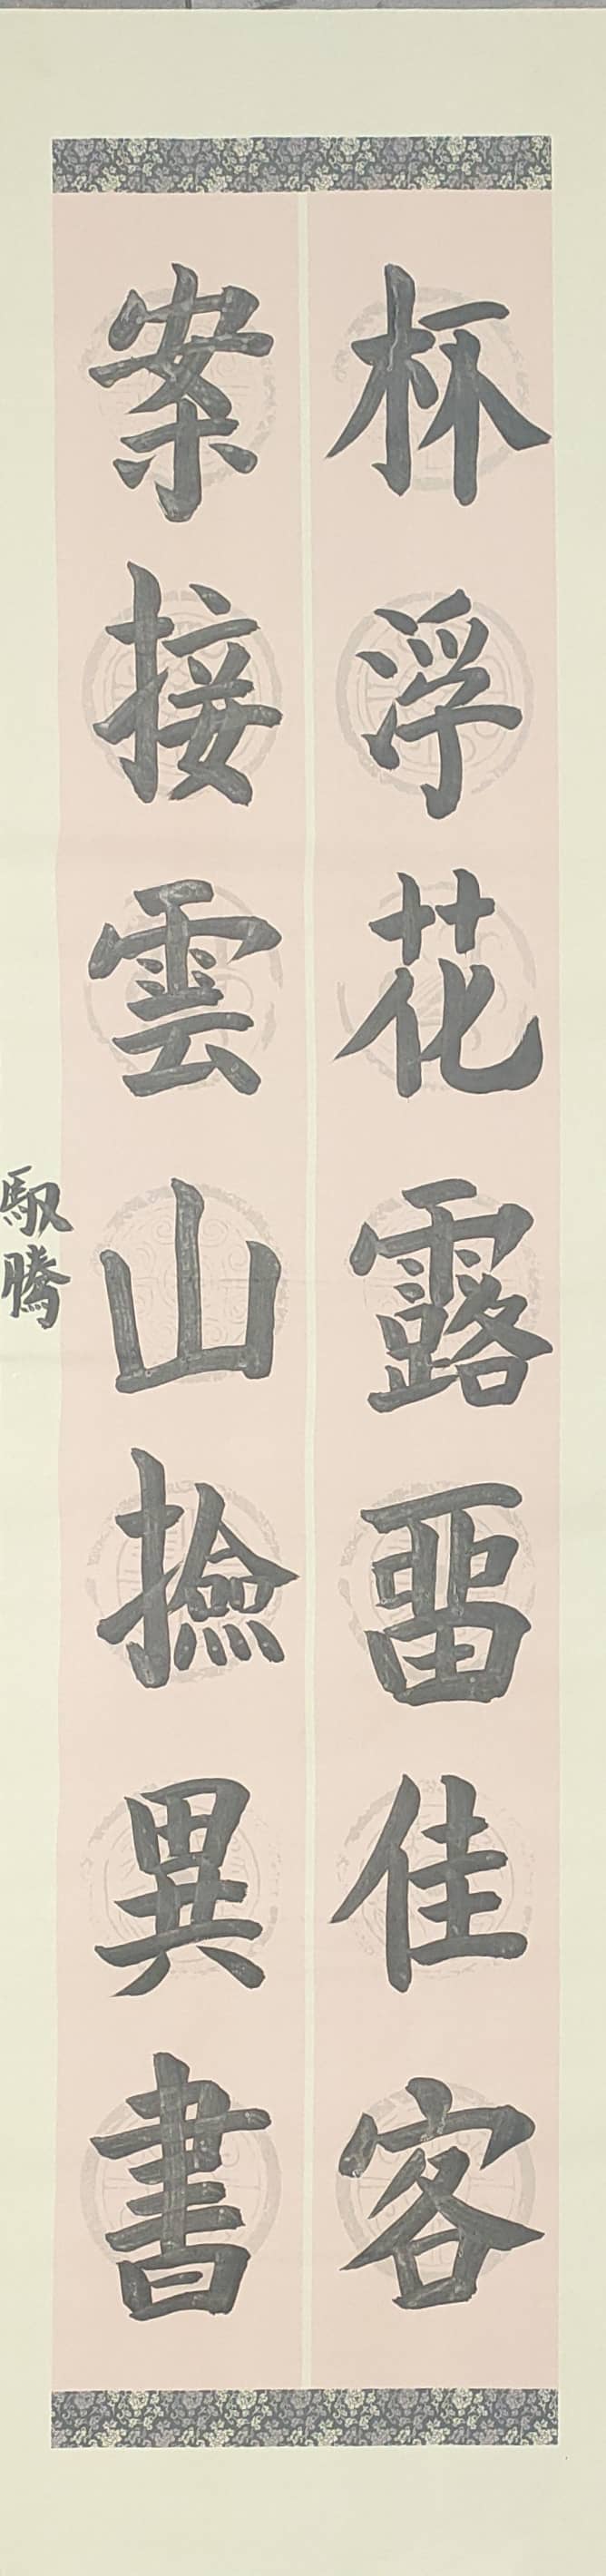 杯浮花露畱佳客
案接雲山撿異書
馭騰